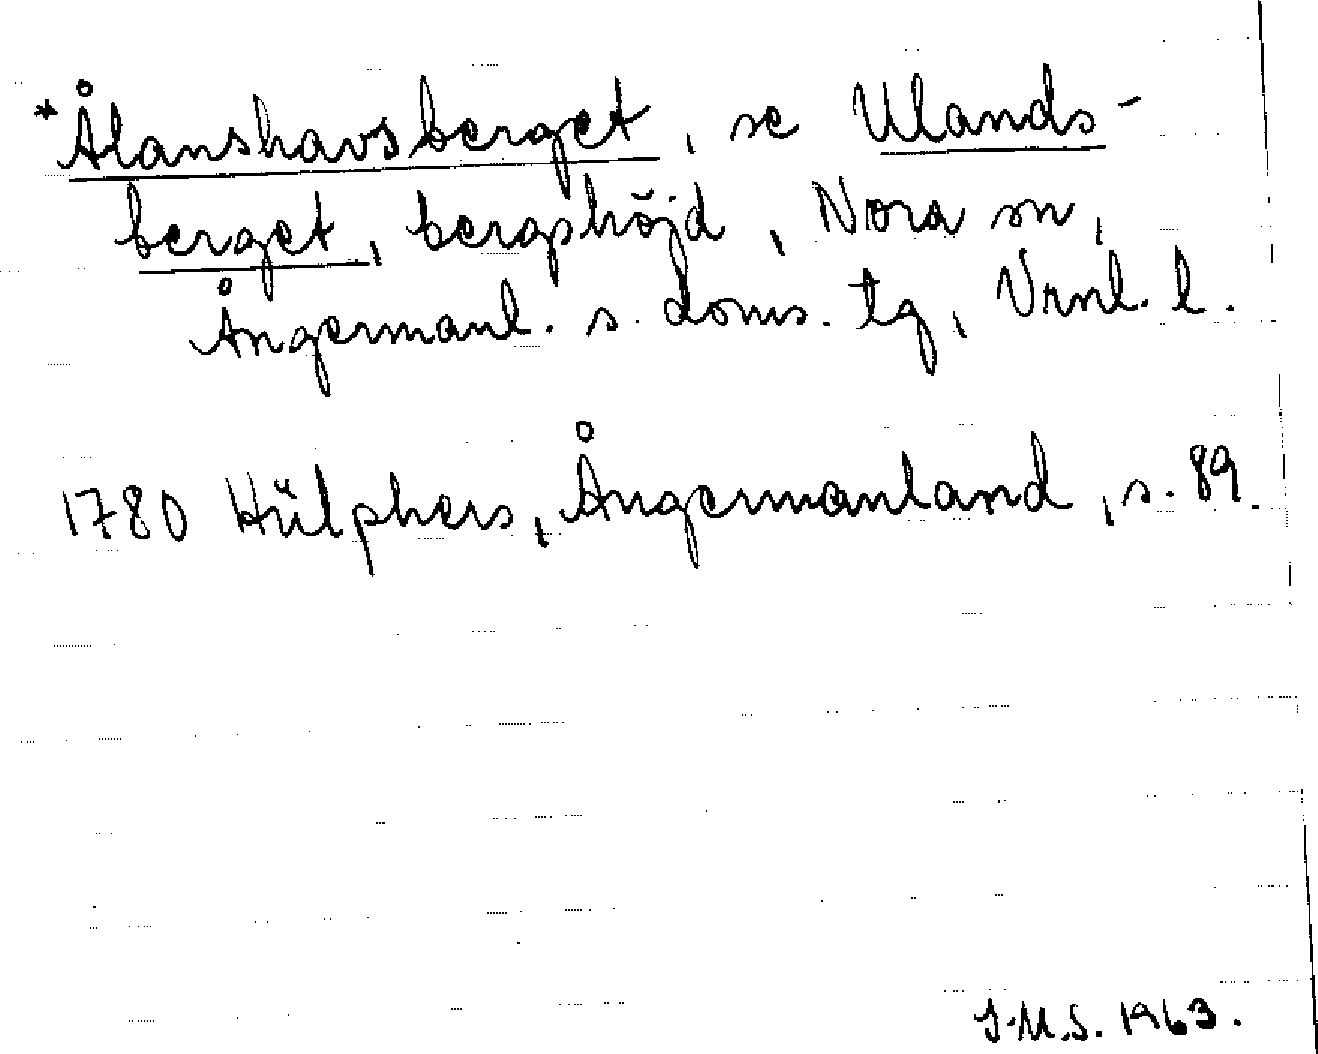 *Ålanshavsberget, se Ulands-
berget, bergshöjd, Nora sn,
Ångermanl. s. doms. tg, Vrnl. l.
1780 Hülphers, Ångermanland, s. 89.
J.M.S. 1963.